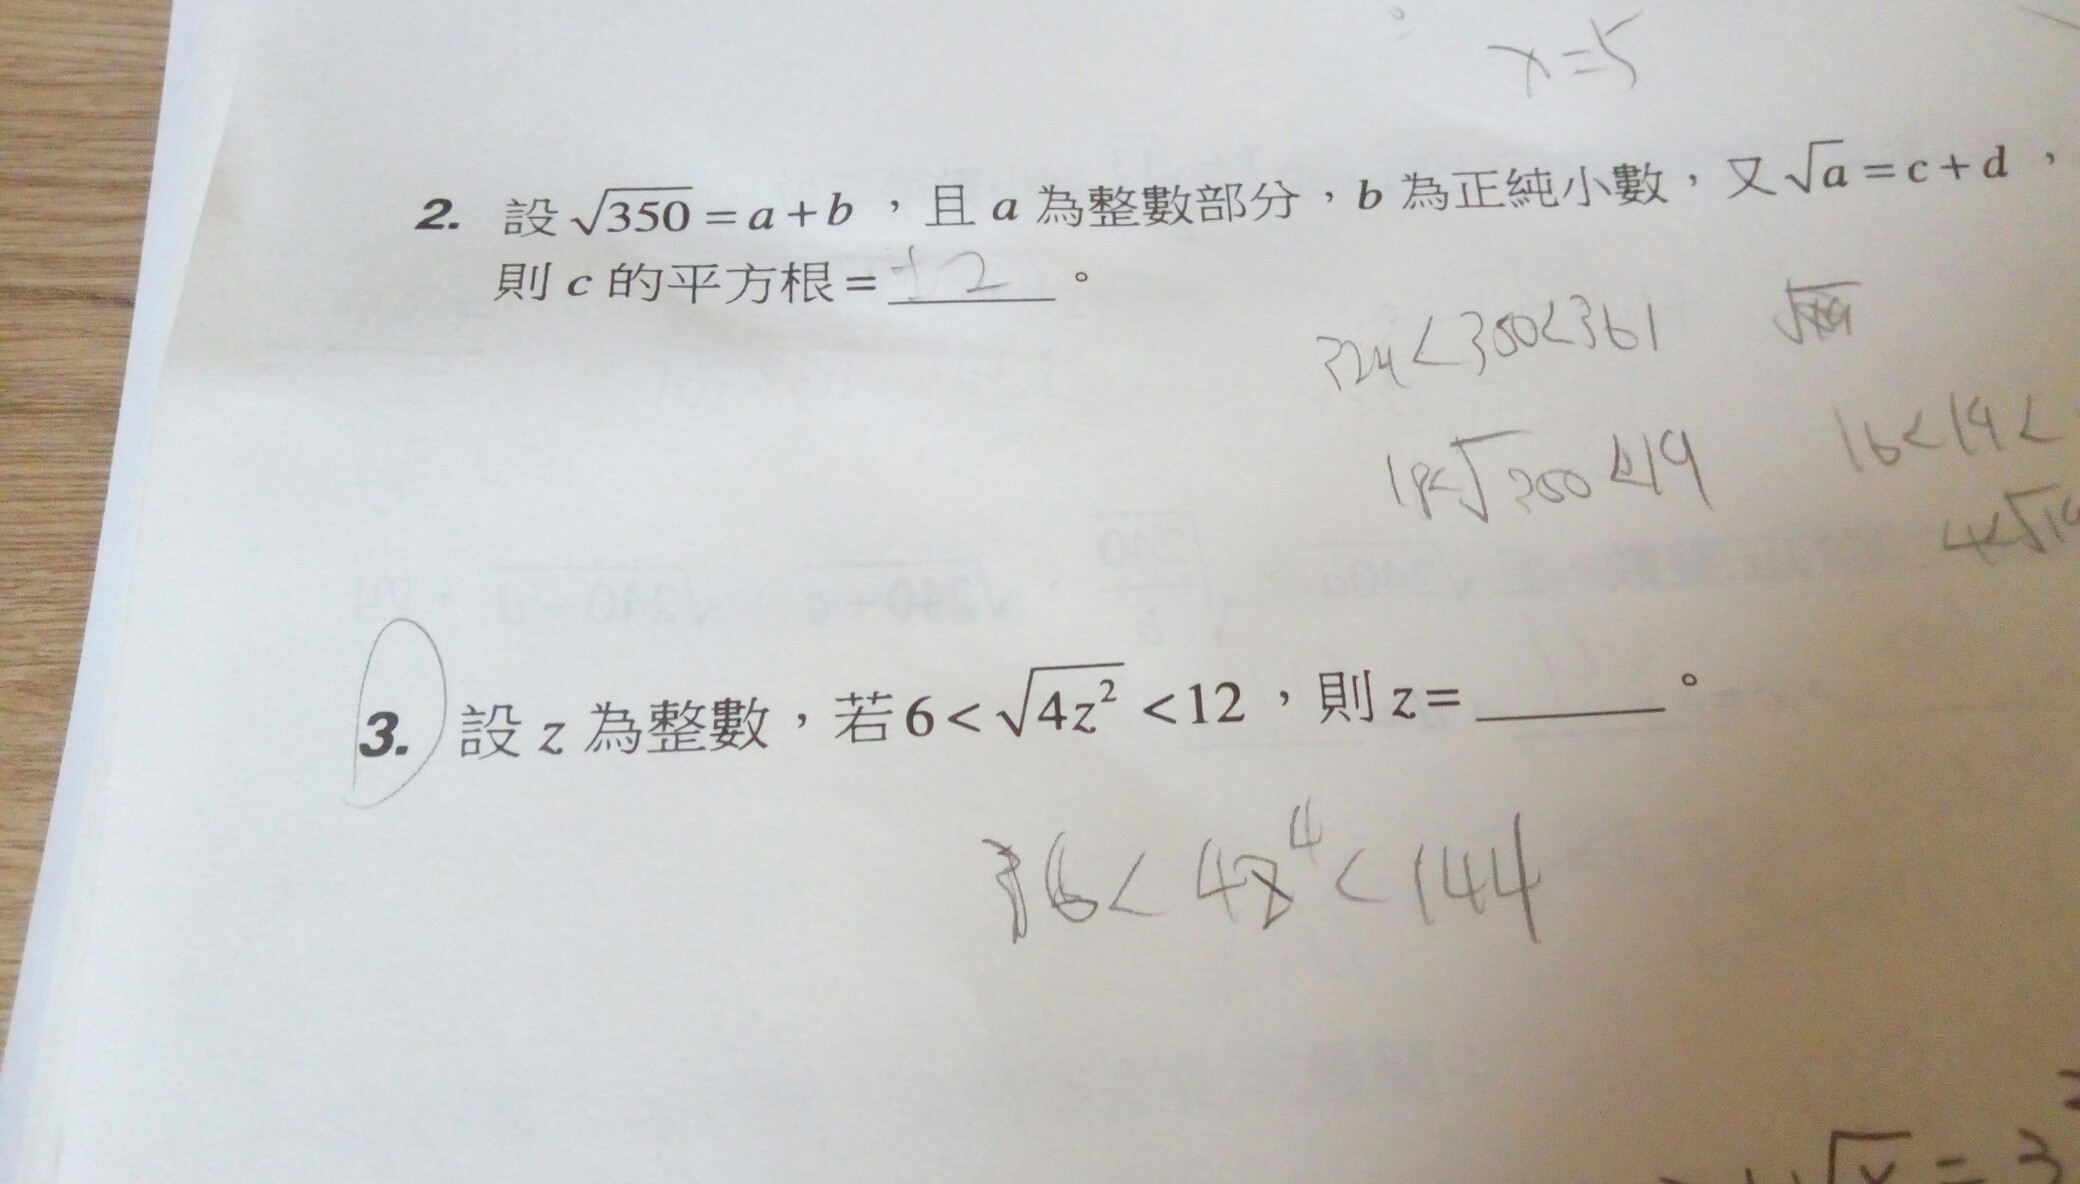 x=5
2. 設√350=a+b，且 a 為整數部分，b 為正純小數，又√a=c+d，
則 c 的平方根=±2。
324<350<361
18<√350<19
16<19<
3. 設 z 為整數，若6<√4z²<12，則 z=______。
36<4z⁴<144
√x=3